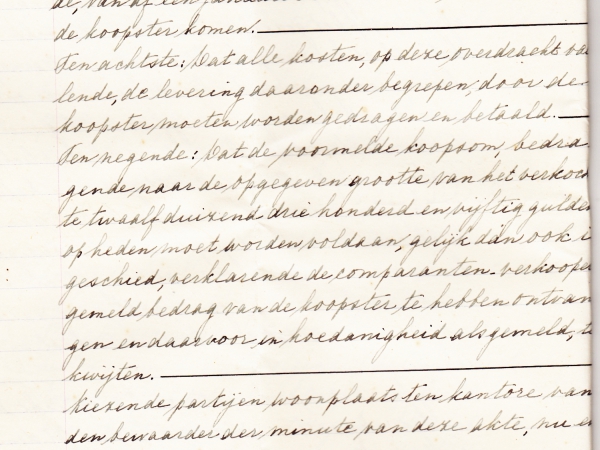 de koopster komen.
Ten achtste: Dat alle kosten, op deze overdracht val
lende, de levering daaronder begrepen, door de
koopster moeten worden gedragen en betaald.
Ten negende: Dat de voormelde koopsom, bedra
gende naar de opgegeven grootte van het verkoch
te twaalf duizend drie honderd en vijftig gulden
op heden moet worden voldaan, gelijk dan ook i
geschied, verklarende de comparanten-verkooper
gemeld bedrag van de koopster te hebben ontvan
gen en daarvoor in hoedanigheid als gemeld, te
kwijten.
Kiezende partijen woonplaats ten kantore van
den bewaarder der minute van deze akte, nu en